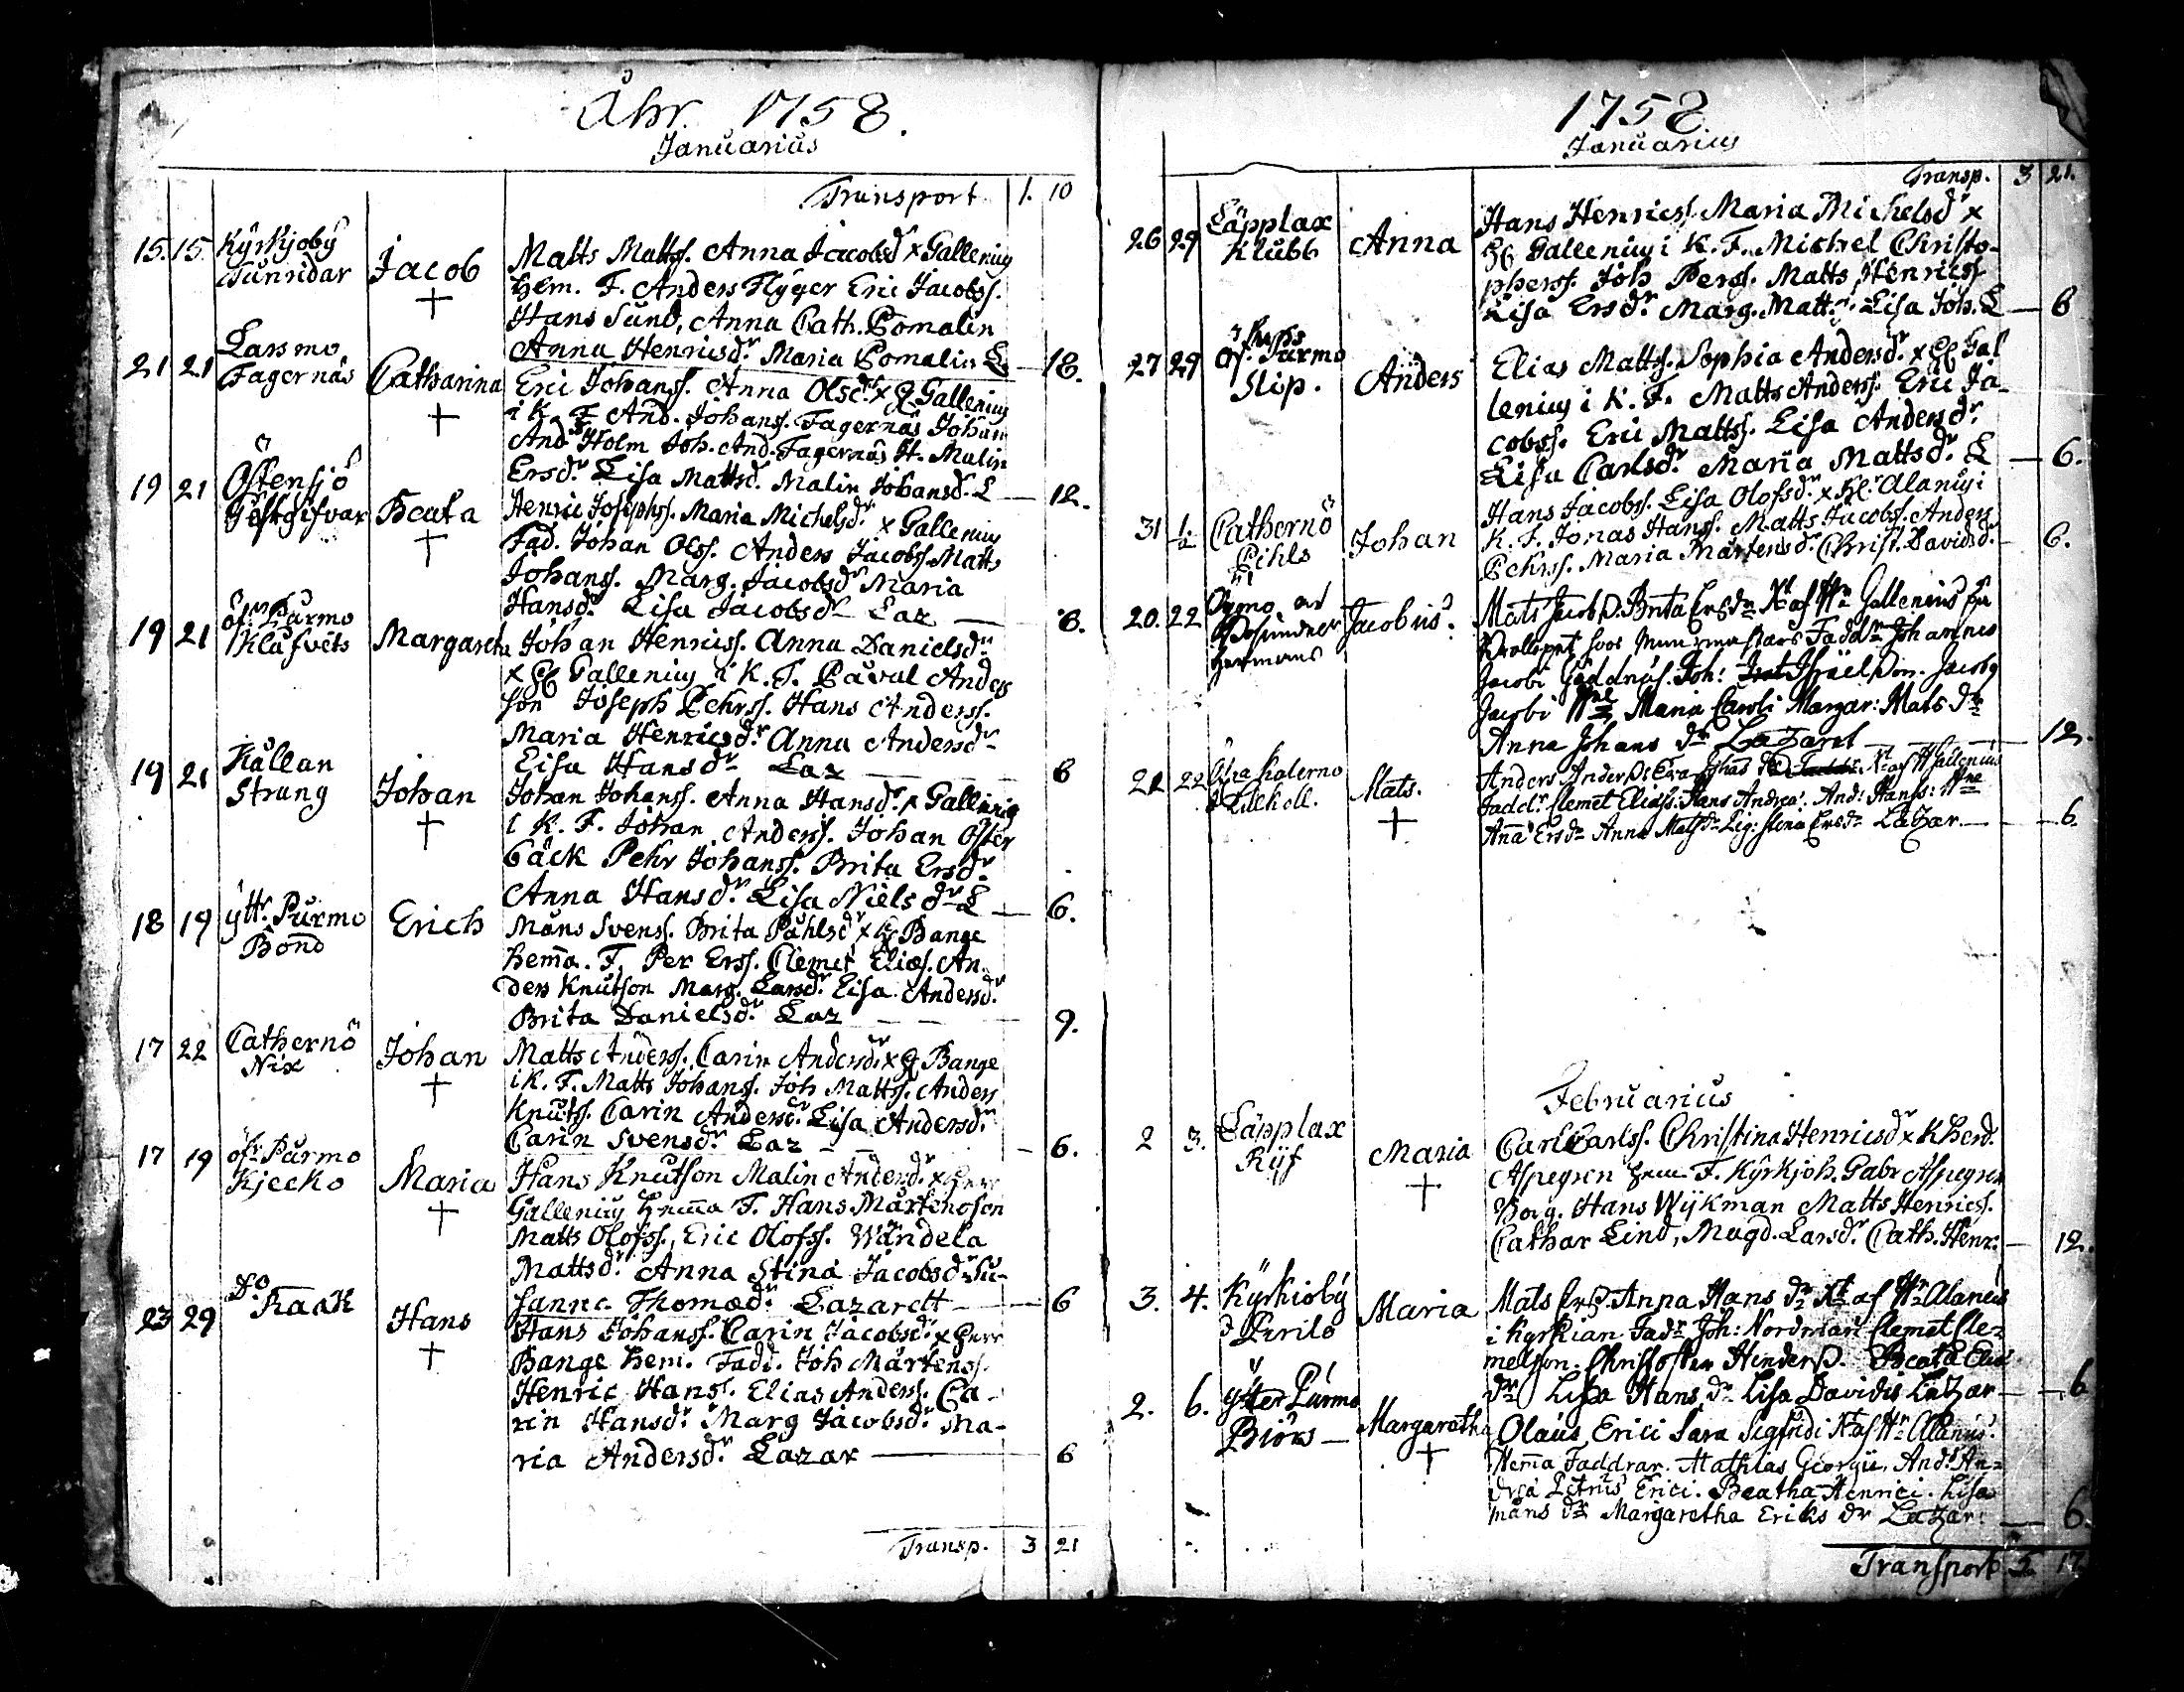 Åhr 1758.
Januarius
Transport 1. 10
15. 15. Kyrkjoby Jacob Matts Mattss. Anna Jacobsdr x Gallenius
Sunnidar Hem. F. Anders Flyger Eric Jacobss.
Hans Sund, Anna Cath. Pomalin
Anna Henricsdr. Maria Pomalin L. — 18.
21 21 Larsmo Catharina Eric Johanss. Anna Olsdr x Gallenius
Fagernäs i K. F. And. Johanss. Fagernäs Johan
And. Holm Joh. And. Fagernäs H. Malin
Ersdr. Lisa Mattsd. Malin Johansd. L — 12.
19 21 Östensjö Beata Henric Josephss. Maria Michelsdr. x Gallenius
Gästgifvar Fad. Johan Olss. Anders Jacobss. Matts
Johanss. Marg. Jacobsdr Maria
Hansdr. Lisa Jacobsdr Laz — 6.
19 21 öf. Purmo Margareta Johan Henricss. Anna Danielsdr.
Klafvets x Gallenius i K. F. Påval Anders
son Joseph Pehrss. Hans Anderss.
Maria Henricsdr. Anna Andersdr
Lisa Hansdr Laz — 6
19 21 Kållan Johan Johan Johanss. Anna Hansdr. x Gallenius
Strang i K. F. Johan Anderss. Johan Öster
bäck Pehr Johanss. Brita Ersdr.
Anna Hansdr. Lisa Nielsdr L — 6.
18 19 ytt. Purmo Erich Måns Svenss. Brita Påhlsdr x Bange
Bond hem̃a. F. Per Erss. Clemet Elias. An
ders Knutson Marg. Larsdr. Lisa Andersdr.
Brita Danielsdr. Laz — 9.
17 22 Cathernö Johan Matts Anderss. Carin Andersdr. x Bange
Nix i K. F. Matts Johanss. Joh Mattss. Anders
Knutss. Carin Andersdr. Lisa Andersdr.
Carin Svensdr. Laz — 6.
17 19 öf. Purmo Maria Hans Knutson Malin Andersdr. x Herr
Kjecko Gallenius hem̃a F. Hans Mårtenson
Matts Olofss., Eric Olofss. Wändela
Mattsdr. Anna Stina Jacobsdr. Su-
sanna Thomædr. Lazarett — 6
23 29 Do Kaak Hans Hans Johanss. Carin Jacobsdr. x Herr
Bange hem. Fadd. Joh Mårtenss.
Henric Hanss. Elias Anderss. Ca-
rin Hansdr. Marg Jacobsdr. Ma-
ria Andersdr. Lazar — 6
Transp. 3 21
1758
Januarius
Transp. 3 21.
26 29 Läpplax Anna Hans Henricss. Maria Michelsdr x
Klubb Gallenius i K. F. Michel Christo-
pherss. Joh Perss. Matts Henricss
Lisa Ersdr. Marg. Matt. Lisa Joh. L — 6
27 29 Öf. Purmo Anders Elias Mattss. Sophia Andersdr. x Gal
Slip. lenius i K. F. Matts Anderss. Eric Ja-
cobss. Eric Mattss. Lisa Andersdr.
Lisa Carlsdr. Maria Mattsdr. L — 6.
31 1. Cathernö Johan Hans Jacobss. Lisa Olofsdr. x Alanius i
Pehls K. F. Jonas Hanss. Matts Jacobss. Anders
Pehrss. Maria Mårtensdr. Christ. Davidsd. — 6.
20. 22 Jacobus. Mats Jacobss. Brita Ersdr af Hr Gallenius på
Hermans Fadd. Johannes
Jacobi Gäddnäs. Joh: Israel Jacobs
Jacobi Maria Caroli Margar: Mats dr
Anna Johans dr Lazaret — 12.
21 22 Mats. Anders Anderss: Eva af Hr Gallenius
Fadd. Clemet Eliass: Hans Andreæ. And: Hanss:
Anna Ersdr Anna Matsdr Lig: Stena Ersdr Lazar. — 6.
Februarius
2 3. Läpplax Maria Carl Carlss. Christina Henricsdr x K herd.
Ryf Aspegren hem. F. Kyrkjoh. Gabr Aspegren
Borg. Hans Wijkman Matts Henricss.
Cathar Lind, Magd. Larsdr. Cath. Henr. — 12.
3. 4. Kyrkioby Maria Mats Erss. Anna Hans dr af Hr Alanius
Perils i Kyrkian Fadr Joh: Nordman Clemet Cle-
metson. Christoffer Hinderss. Beata
dr Lisa Hans dr Lisa Davidis Latzar — 6
2. 6. Ytter Purmo Margaretha Olaus Erici Sara Sigfridi af Hr Alanius.
Biörs — Hem̃a Faddrar. Mathias Georgii. And. An-
dreæ Petrus Erici. Beatha Henrici. Lisa
måns dr Margaretha Eriks dr Latzar: — 6.
Transport 5. 17